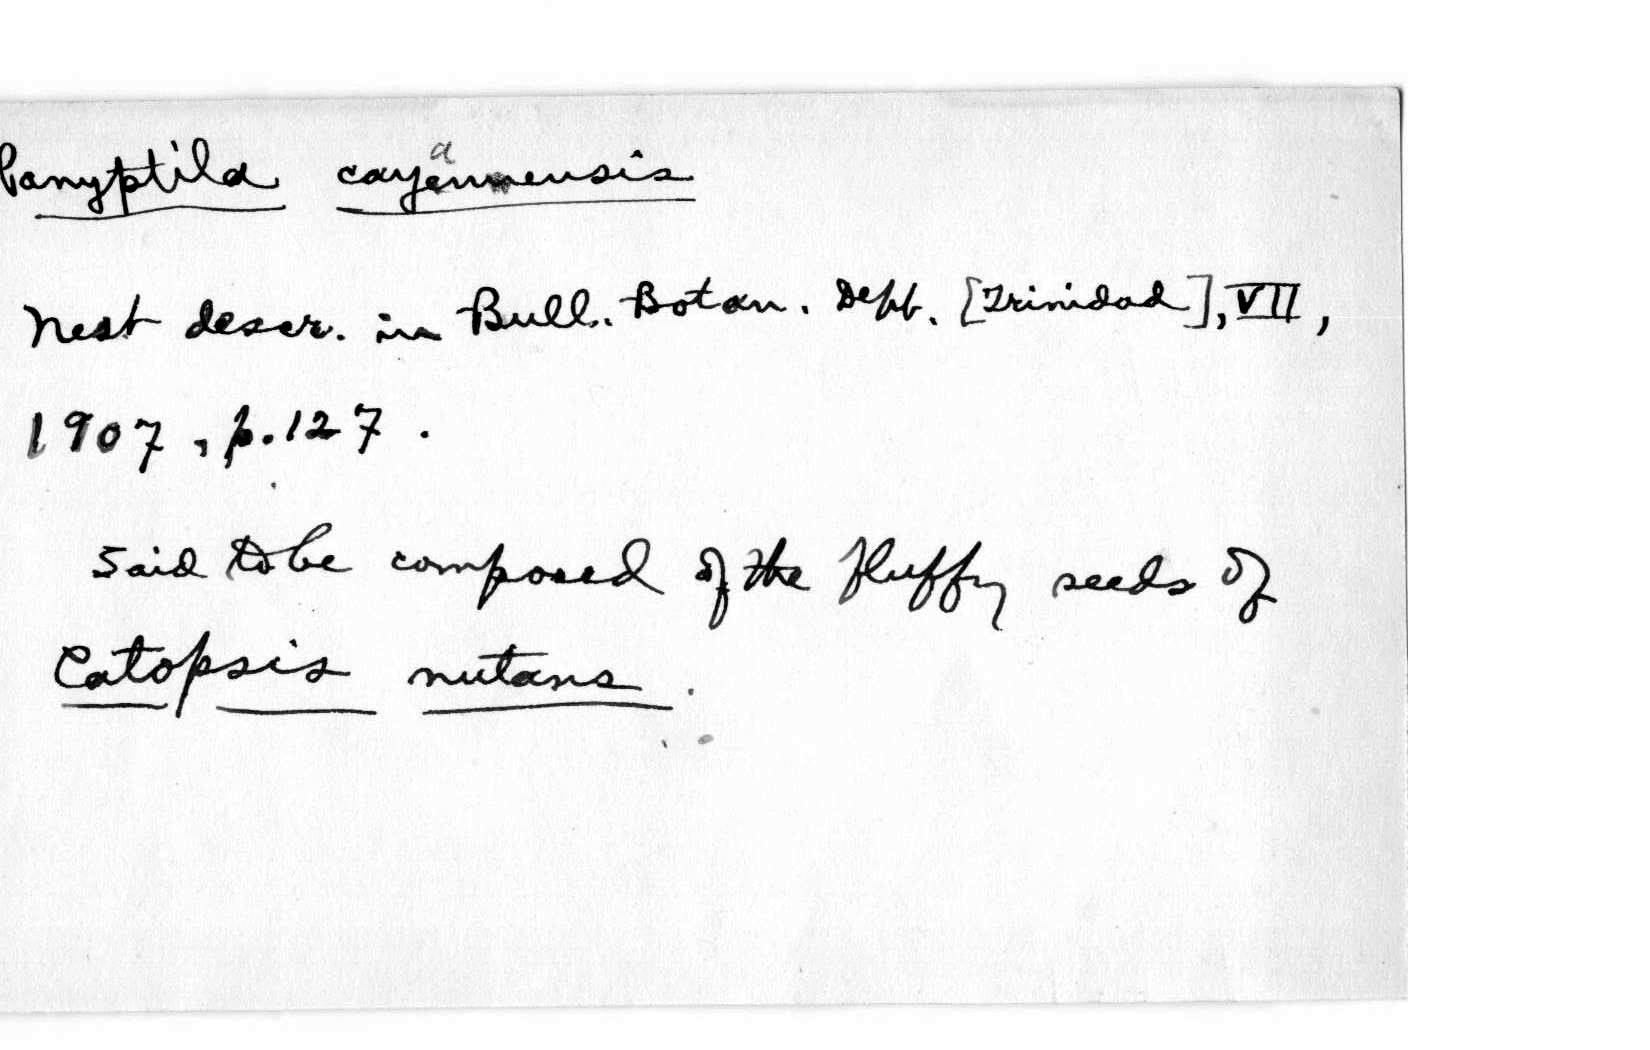 Panyptila cayennensis
a
Nest descr. in Bull. Botan. Dept. [Trinidad], VII,
1907, p. 127.
Said to be composed of the fluffy seeds of
Catopsis nutans.